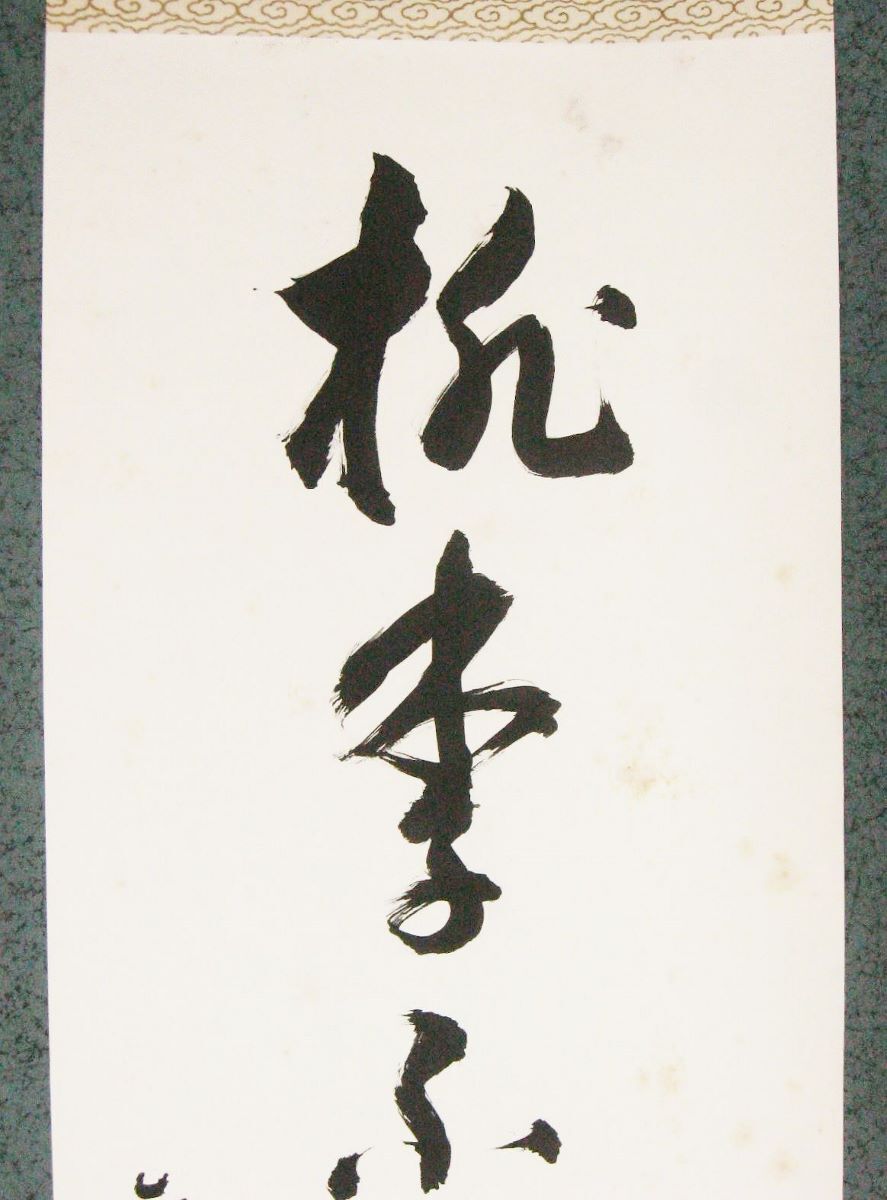 桃李不